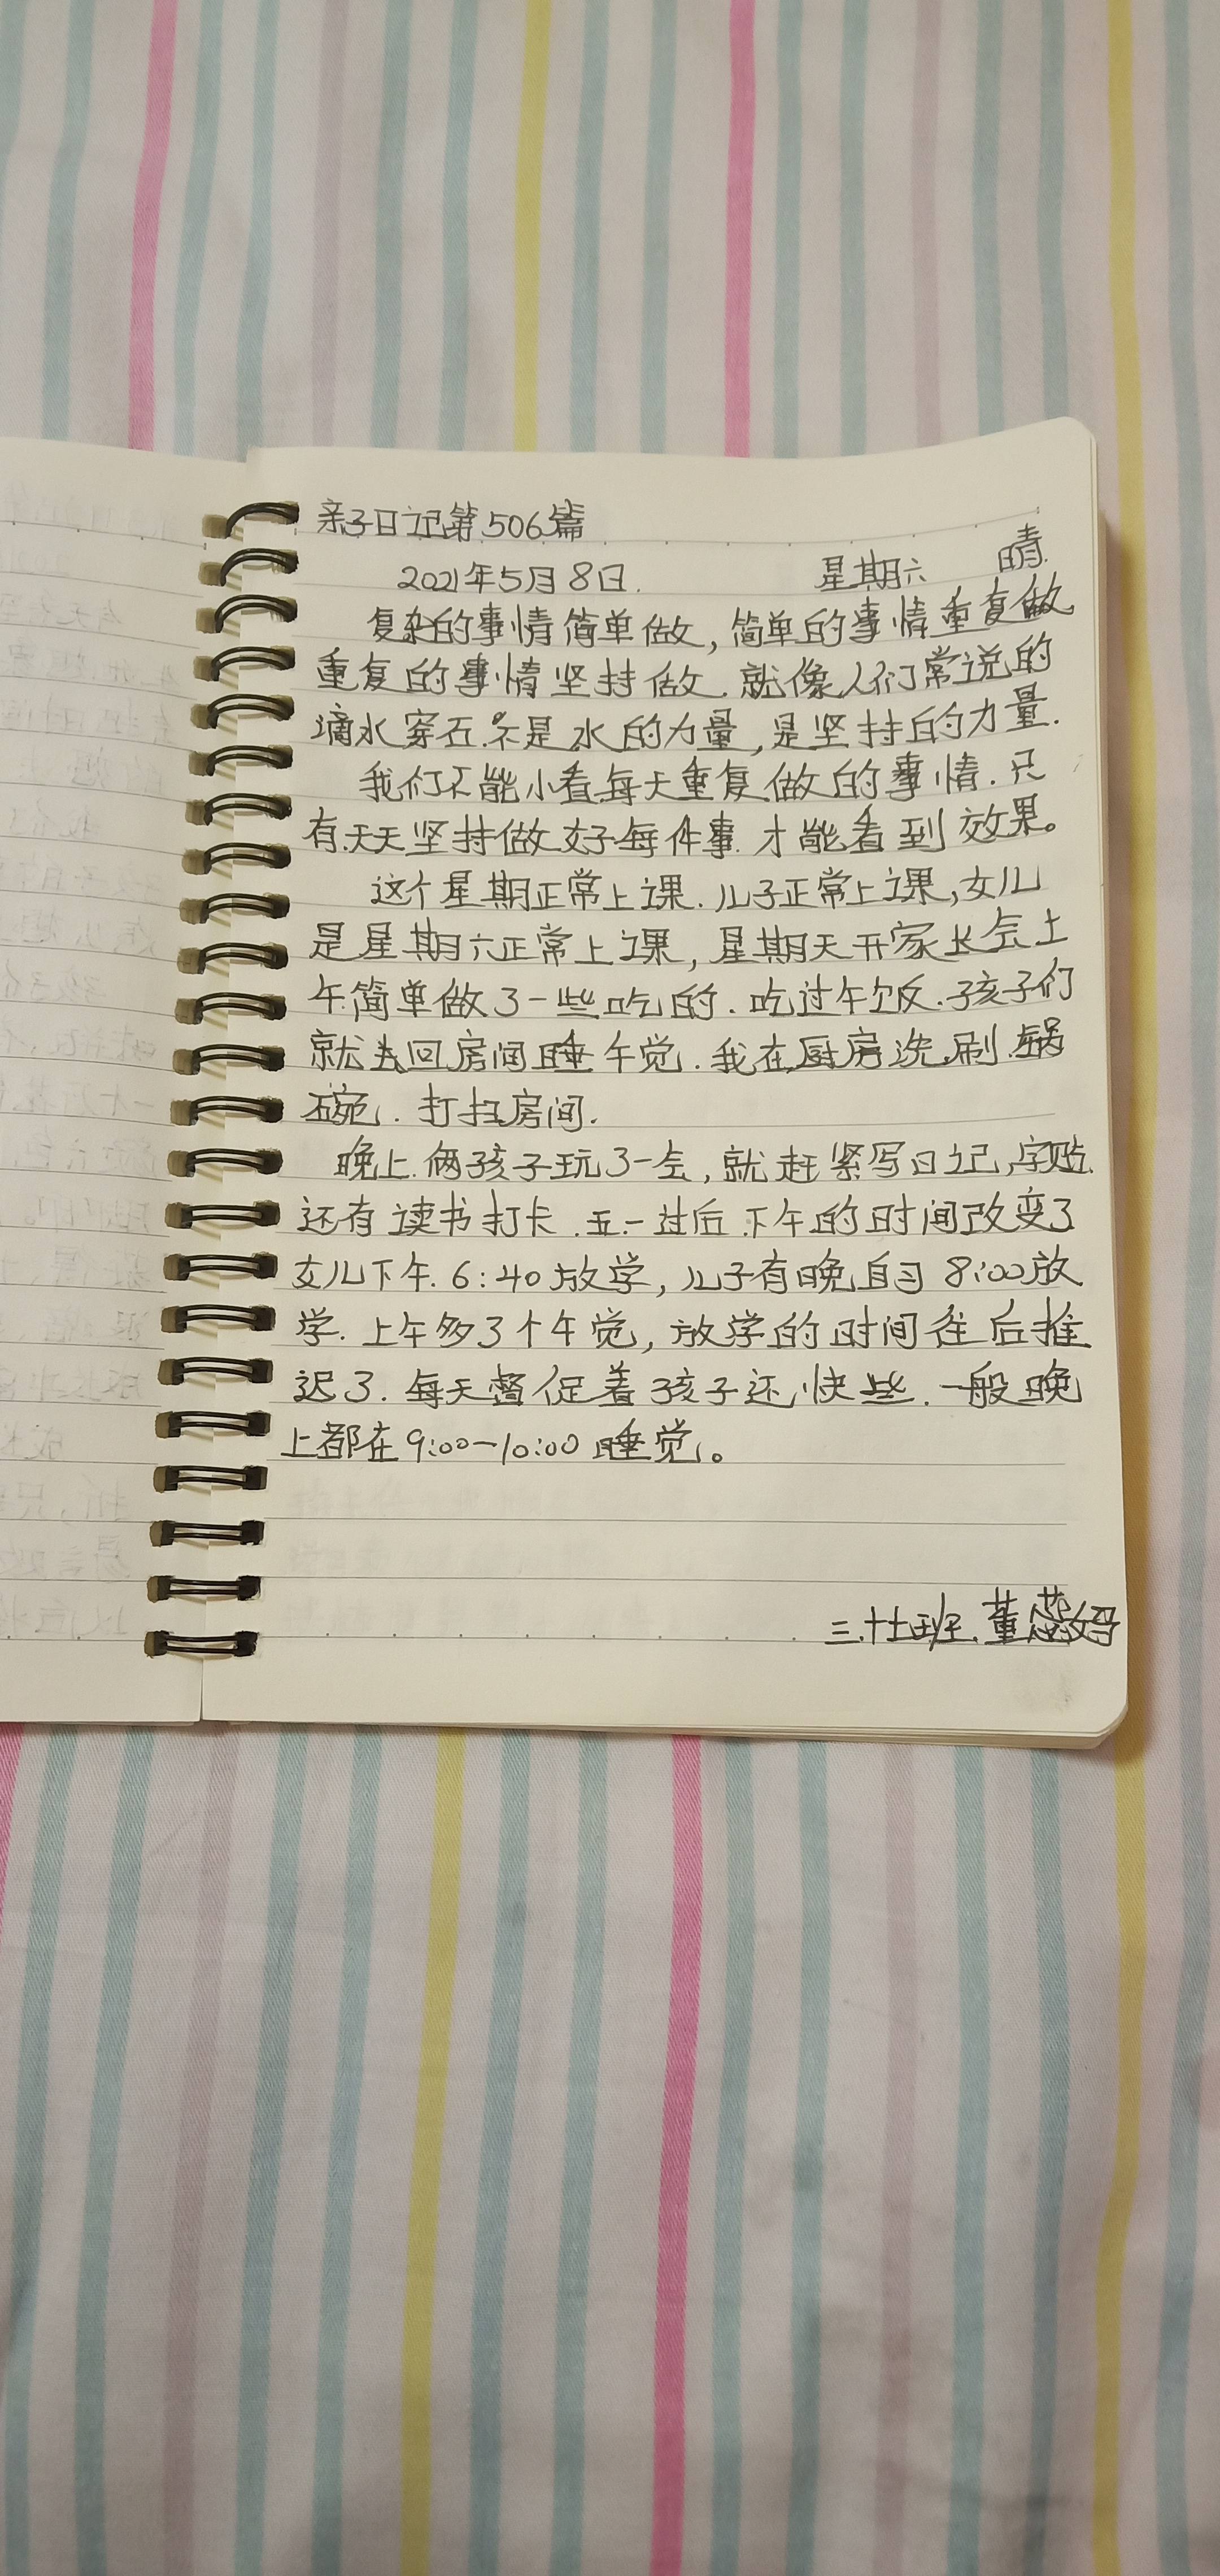 亲子日记第506篇
2021年5月8日. 星期六 晴.
复杂的事情简单做,简单的事情重复做
重复的事情坚持做.就像人们常说的
滴水穿石.不是水的力量,是坚持的力量.
我们不能小看每天重复做的事情.只
有天天坚持做好每件事.才能看到效果。
这个星期正常上课.儿子正常上课,女儿
是星期六正常上课,星期天开家长会上
午简单做了一些吃的.吃过午饭.孩子们
就去回房间睡午觉.我在厨房洗刷锅
碗.打扫房间.
晚上.俩孩子玩了一会,就赶紧写日记,字贴.
还有读书打卡.五一过后.下午的时间改变了
女儿下午.6:40放学,儿子有晚自习8:00放
学.上午多了个午觉,放学的时间往后推
迟了.每天督促着孩子还快些.一般晚
上都在9:00-10:00睡觉。
三.十七班.董蕊妈